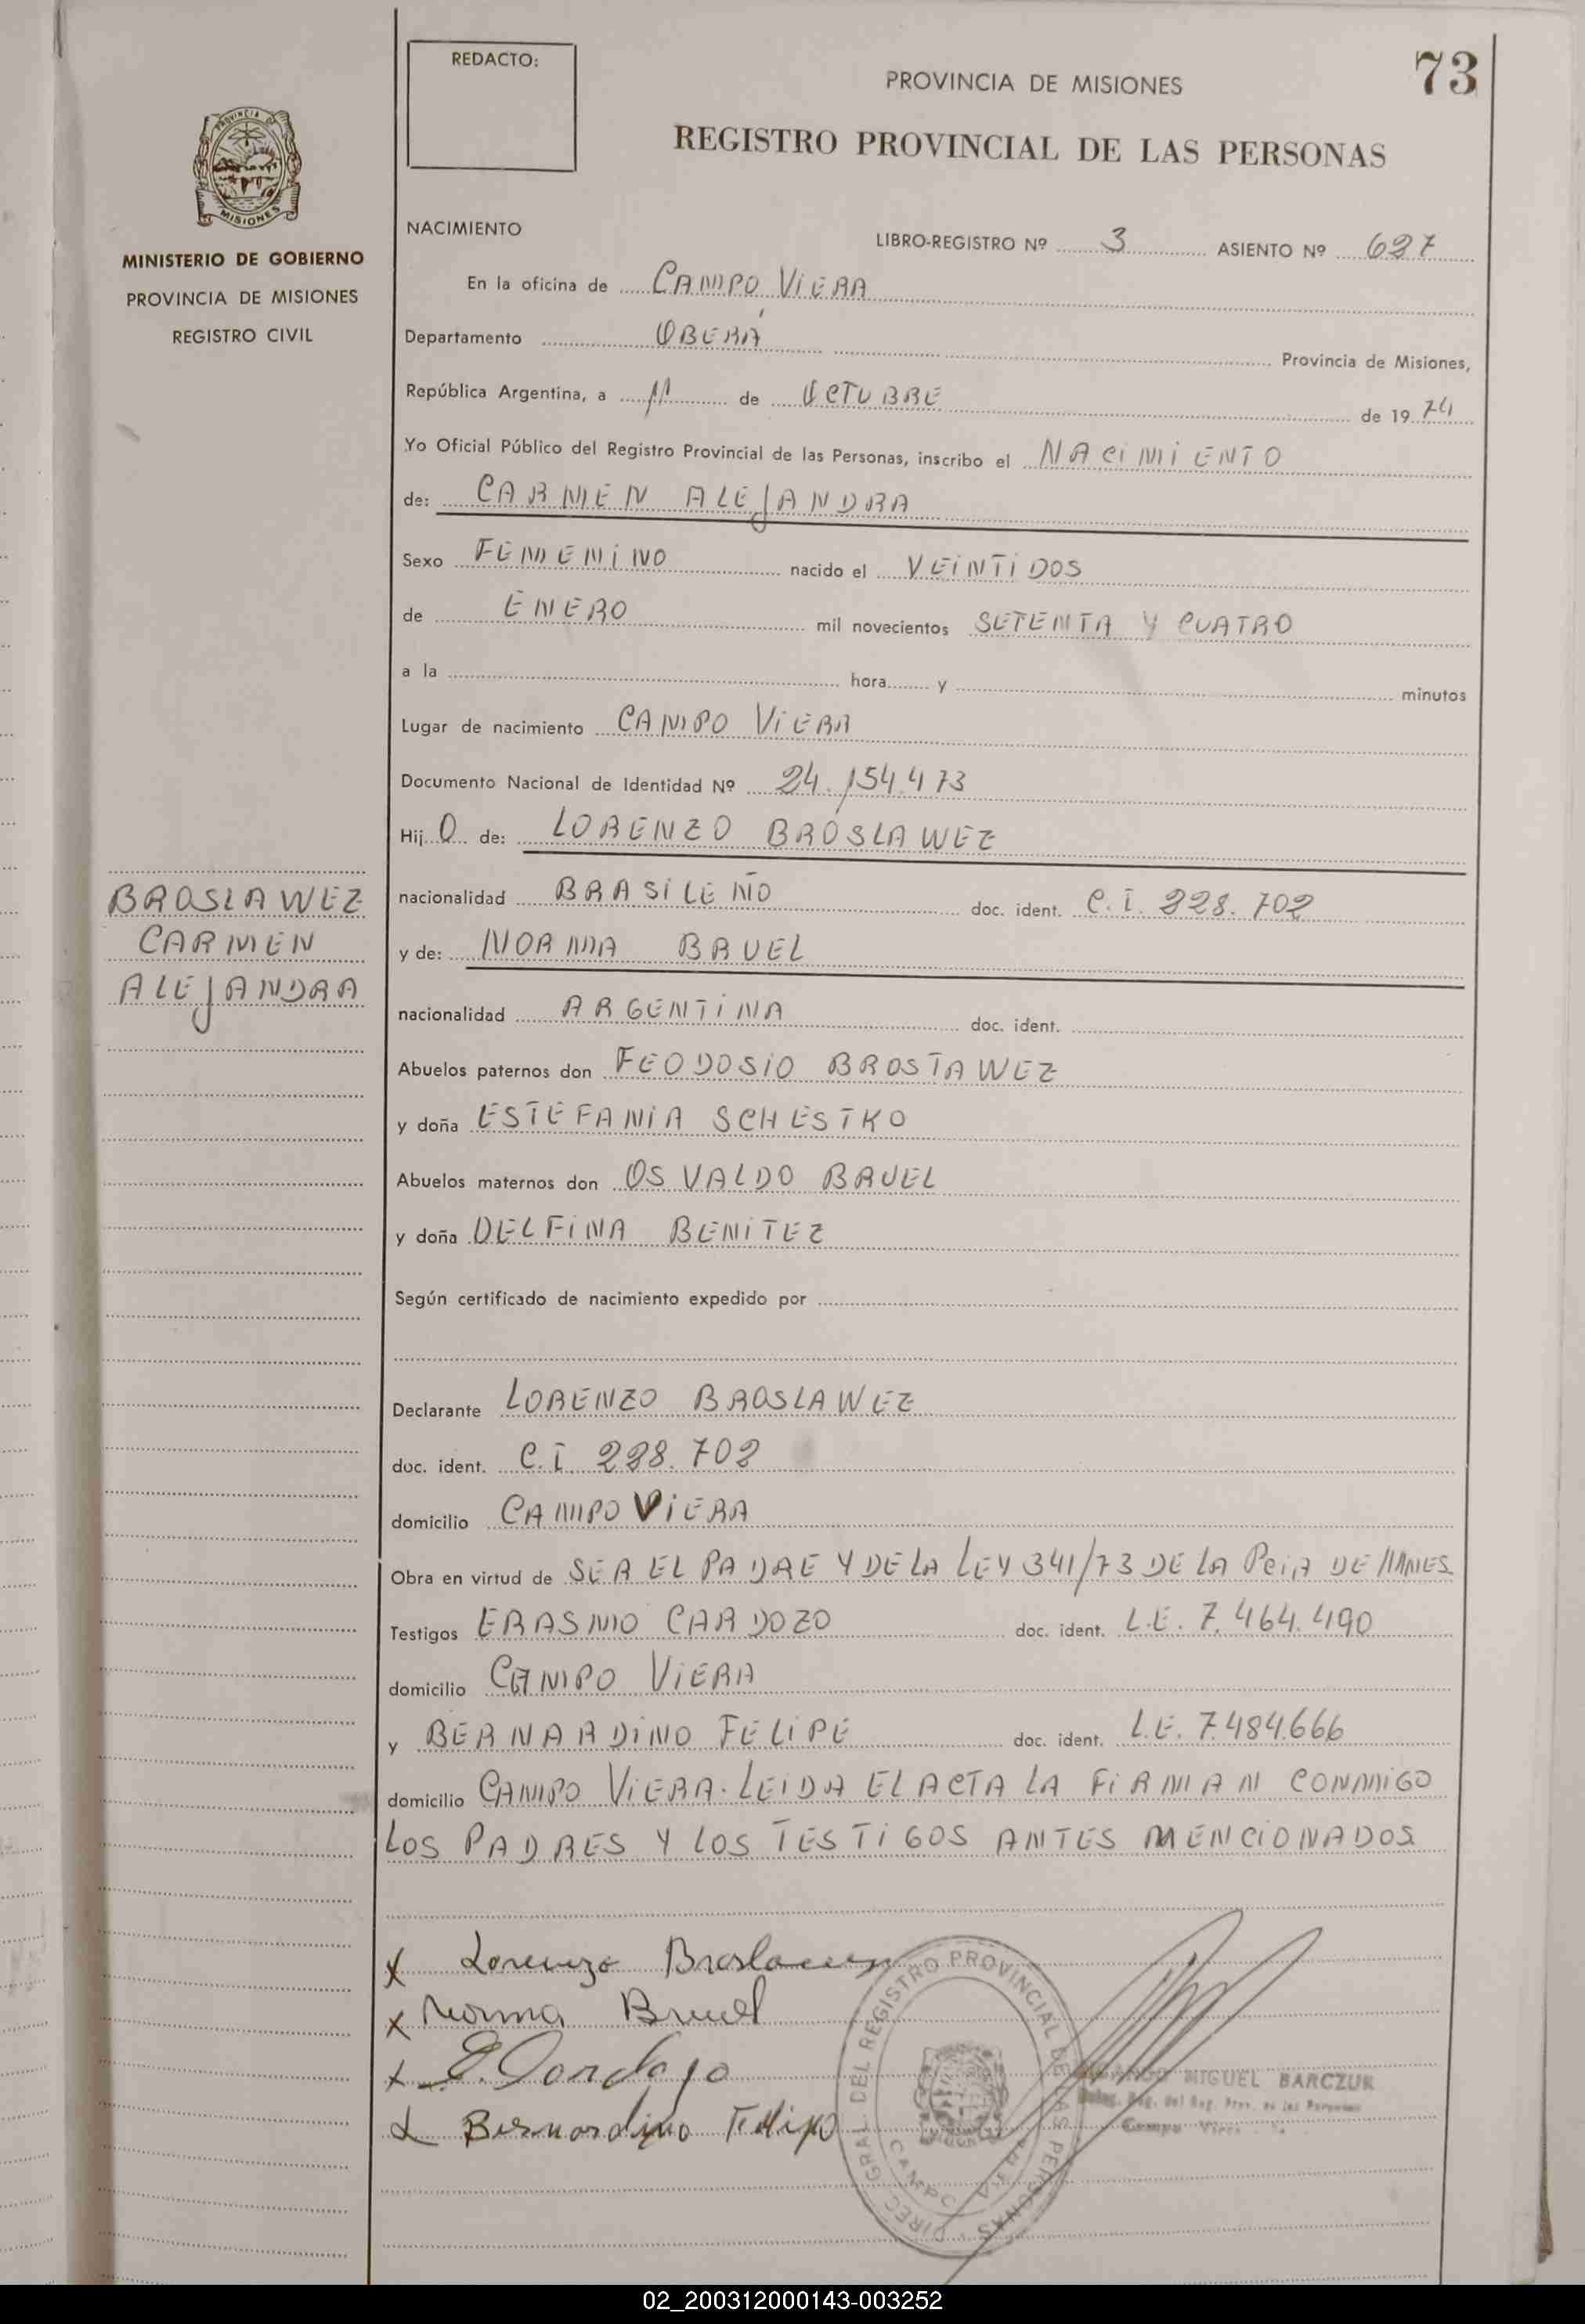 REDACTO:
73
PROVINCIA DE MISIONES
REGISTRO PROVINCIAL DE LAS PERSONAS
PROVINCIA DE MISIONES
MINISTERIO DE GOBIERNO
PROVINCIA DE MISIONES
REGISTRO CIVIL
NACIMIENTO
LIBRO-REGISTRO Nº 3 ASIENTO Nº 627
En la oficina de CAMPO VIERA
Departamento OBERÁ Provincia de Misiones,
República Argentina, a 11 de OCTUBRE de 1974
Yo Oficial Público del Registro Provincial de las Personas, inscribo el NACIMIENTO
de: CARMEN ALEJANDRA
Sexo FEMENINO nacido el VEINTIDOS
de ENERO mil novecientos SETENTA Y CUATRO
a la hora y minutos
Lugar de nacimiento CAMPO VIERA
Documento Nacional de Identidad Nº 24.154.473
Hij O de: LORENZO BROSLAWEZ
nacionalidad BRASILEÑO doc. ident. C.I. 228.702
y de: NORMA BRUEL
nacionalidad ARGENTINA doc. ident.
BROSLAWEZ
CARMEN
ALEJANDRA
Abuelos paternos don FEODOSIO BROSTAWEZ
y doña ESTEFANIA SCHESTKO
Abuelos maternos don OSVALDO BRUEL
y doña DELFINA BENITEZ
Según certificado de nacimiento expedido por
Declarante LORENZO BROSLAWEZ
doc. ident. C.I. 228.702
domicilio CAMPO VIERA
Obra en virtud de SER EL PADRE Y DE LA LEY 341/73 DE LA PCIA DE MNES
Testigos ERASMO CARDOZO doc. ident. L.E. 7.464.490
domicilio CAMPO VIERA
y BERNARDINO FELIPE doc. ident. L.E. 7.484.666
domicilio CAMPO VIERA. LEIDA EL ACTA LA FIRMAN CONMIGO
LOS PADRES Y LOS TESTIGOS ANTES MENCIONADOS
x Lorenzo Broslawez
x Norma Bruel
x E. Cardozo
x Bernardino Felipe
DIREC. GRAL. DEL REGISTRO PROVINCIAL DE LAS PERSONAS
CAMPO VIERA
MIGUEL BARCZUK
Campo Viera
02_200312000143-003252